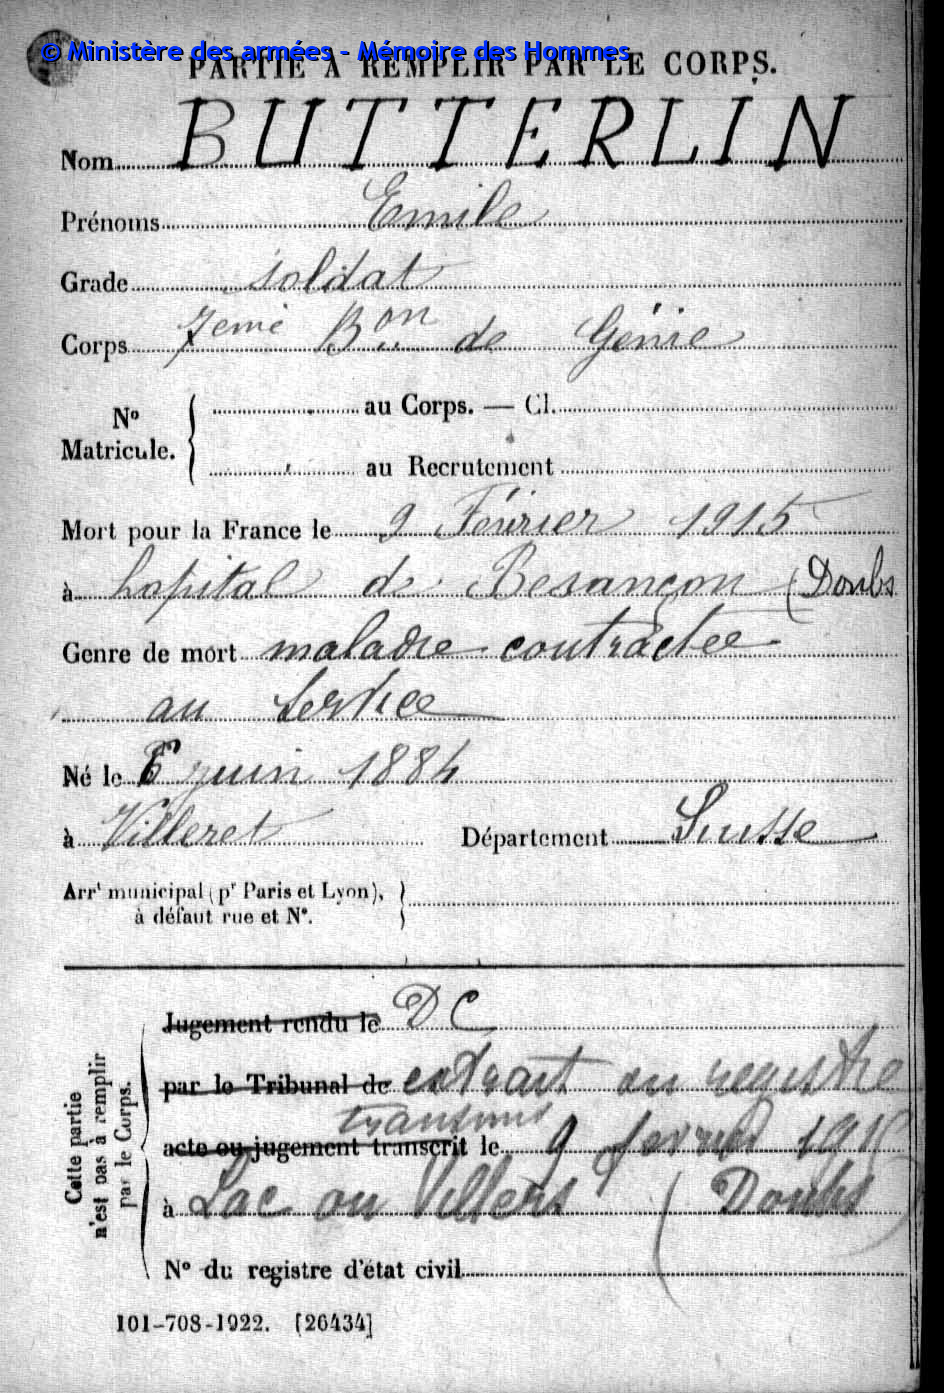 © Ministère des armées - Mémoire des Hommes
PARTIE À REMPLIR PAR LE CORPS.
Nom BUTTERLIN
Prénoms Emile
Grade soldat
Corps 7eme Bon de Génie
No Matricule. { au Corps. — Cl.
au Recrutement
Mort pour la France le 9 Février 1915
à hopital de Besançon (Doubs
Genre de mort maladie contractée
au Service
Né le 6 juin 1884
à Villeret Département Suisse
Arrt municipal (pr Paris et Lyon),
à défaut rue et No.
Cette partie n'est pas à remplir par le Corps.
Jugement rendu le DC
par le Tribunal de extrait au registre
transmis
acte ou jugement transcrit le 9 fevrier
à Lac ou Villers (Doubs)
No du registre d'état civil
101-708-1922. [26434]